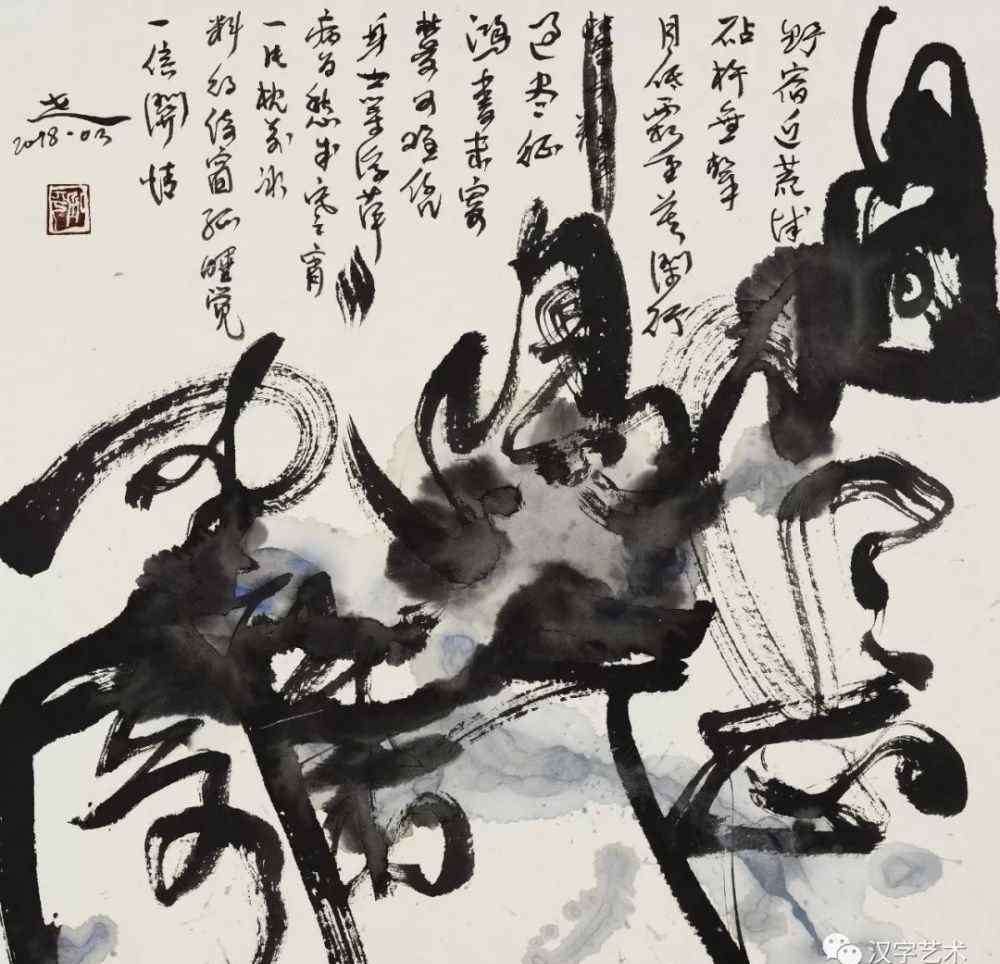 野宿近荒城
砧杵無聲
月低霜重莫閑行
过尽征
鸿書未寄
夢又難凭
身世等浮萍
病为愁成寒宵
一片枕前冰
料得绮窗孤睡觉
一倍関情
2018.03
汉字艺术